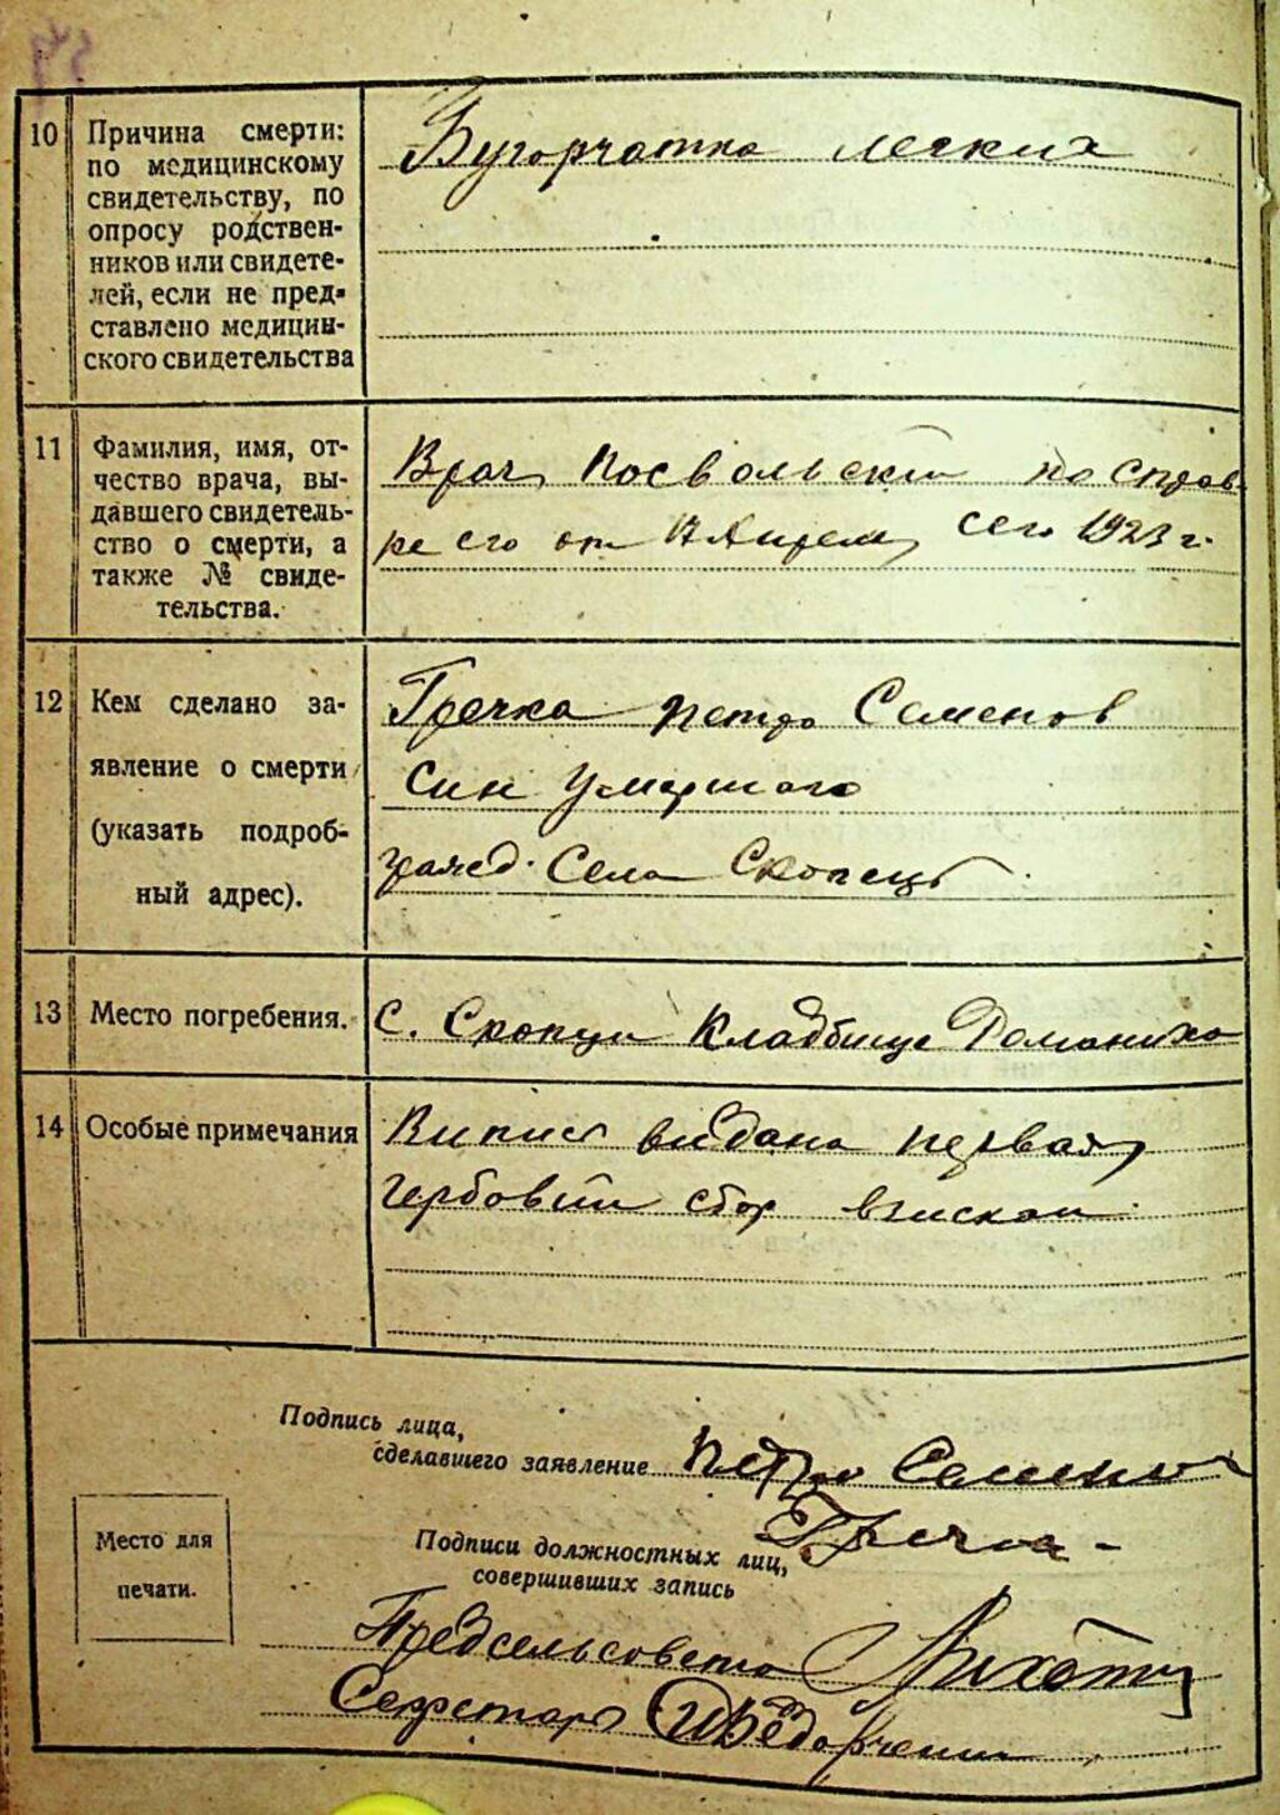 10 Причина смерти:
по медицинскому
свидетельству, по
опросу родствен-
ников или свидете-
лей, если не пред-
ставлено медицин-
ского свидетельства
Бугорчатка легких
11 Фамилия, имя, от-
чество врача, вы-
давшего свидетель-
ство о смерти, а
также № свиде-
тельства.
Врач Посвольский по справ
ке его от Апреля сего 1923 г.
12 Кем сделано за-
явление о смерти
(указать подроб-
ный адрес).
Гречка Петро Семенов
Син Умершого
гражд. Села Скопець
13 Место погребения.
С. Скопци Кладбище Романиха
14 Особые примечания
Випись видана первая
гербовий сбор взискан
Подпись лица,
сделавшего заявление Петро Семенов
Гречка
Место для
печати.
Подписи должностных лиц,
совершивших запись
Предсельсовета
Секретарь